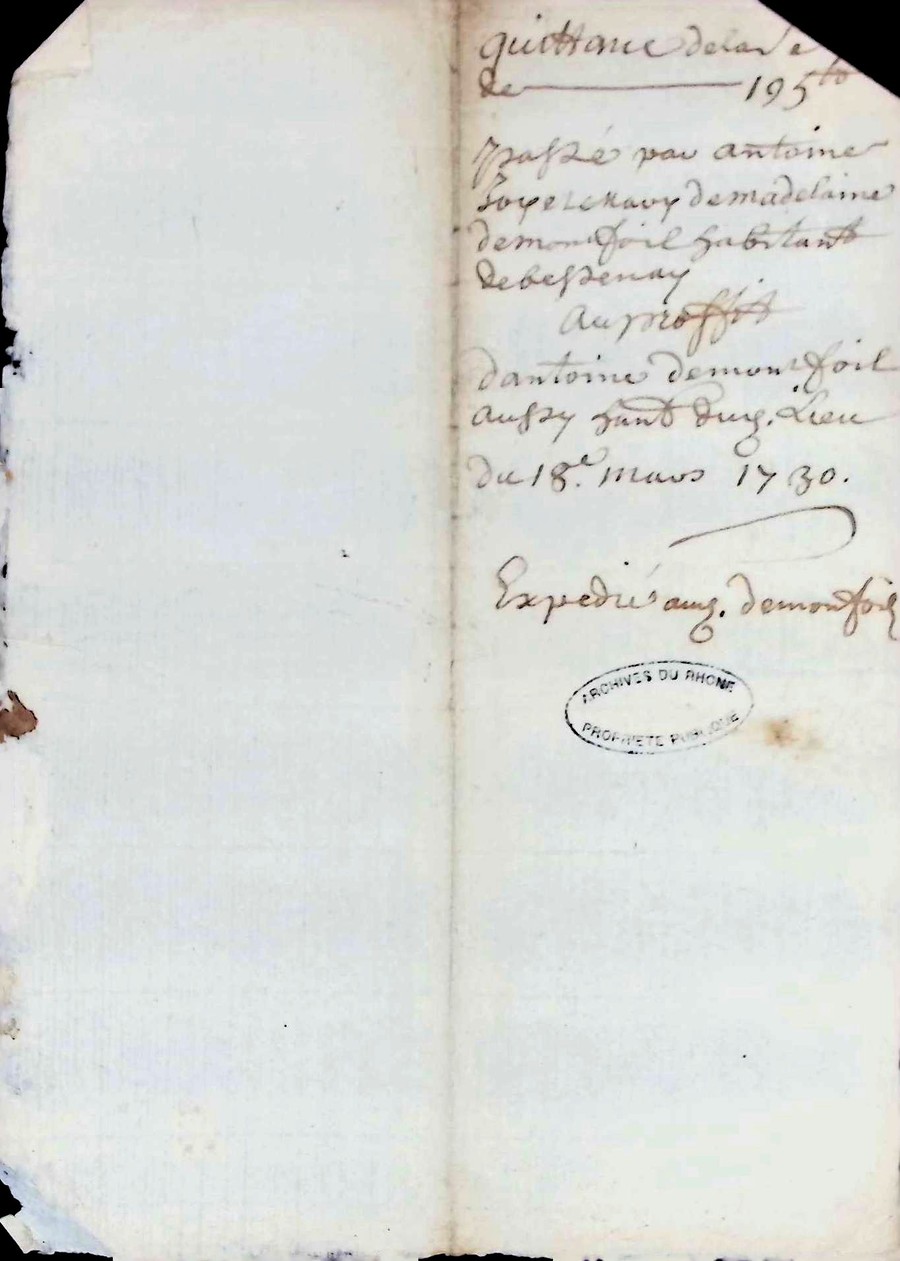 quittance de la
de 195 ll
passée par antoine
demadelaine
demontfoil habitant
debessenay
Au proffit
dantoine demontfoil
aussy hant dud. Lieu
du 18.e mars 1730.
Expedié aud. demontfoil
ARCHIVES DU RHONE
PROPRIETE PUBLIQUE